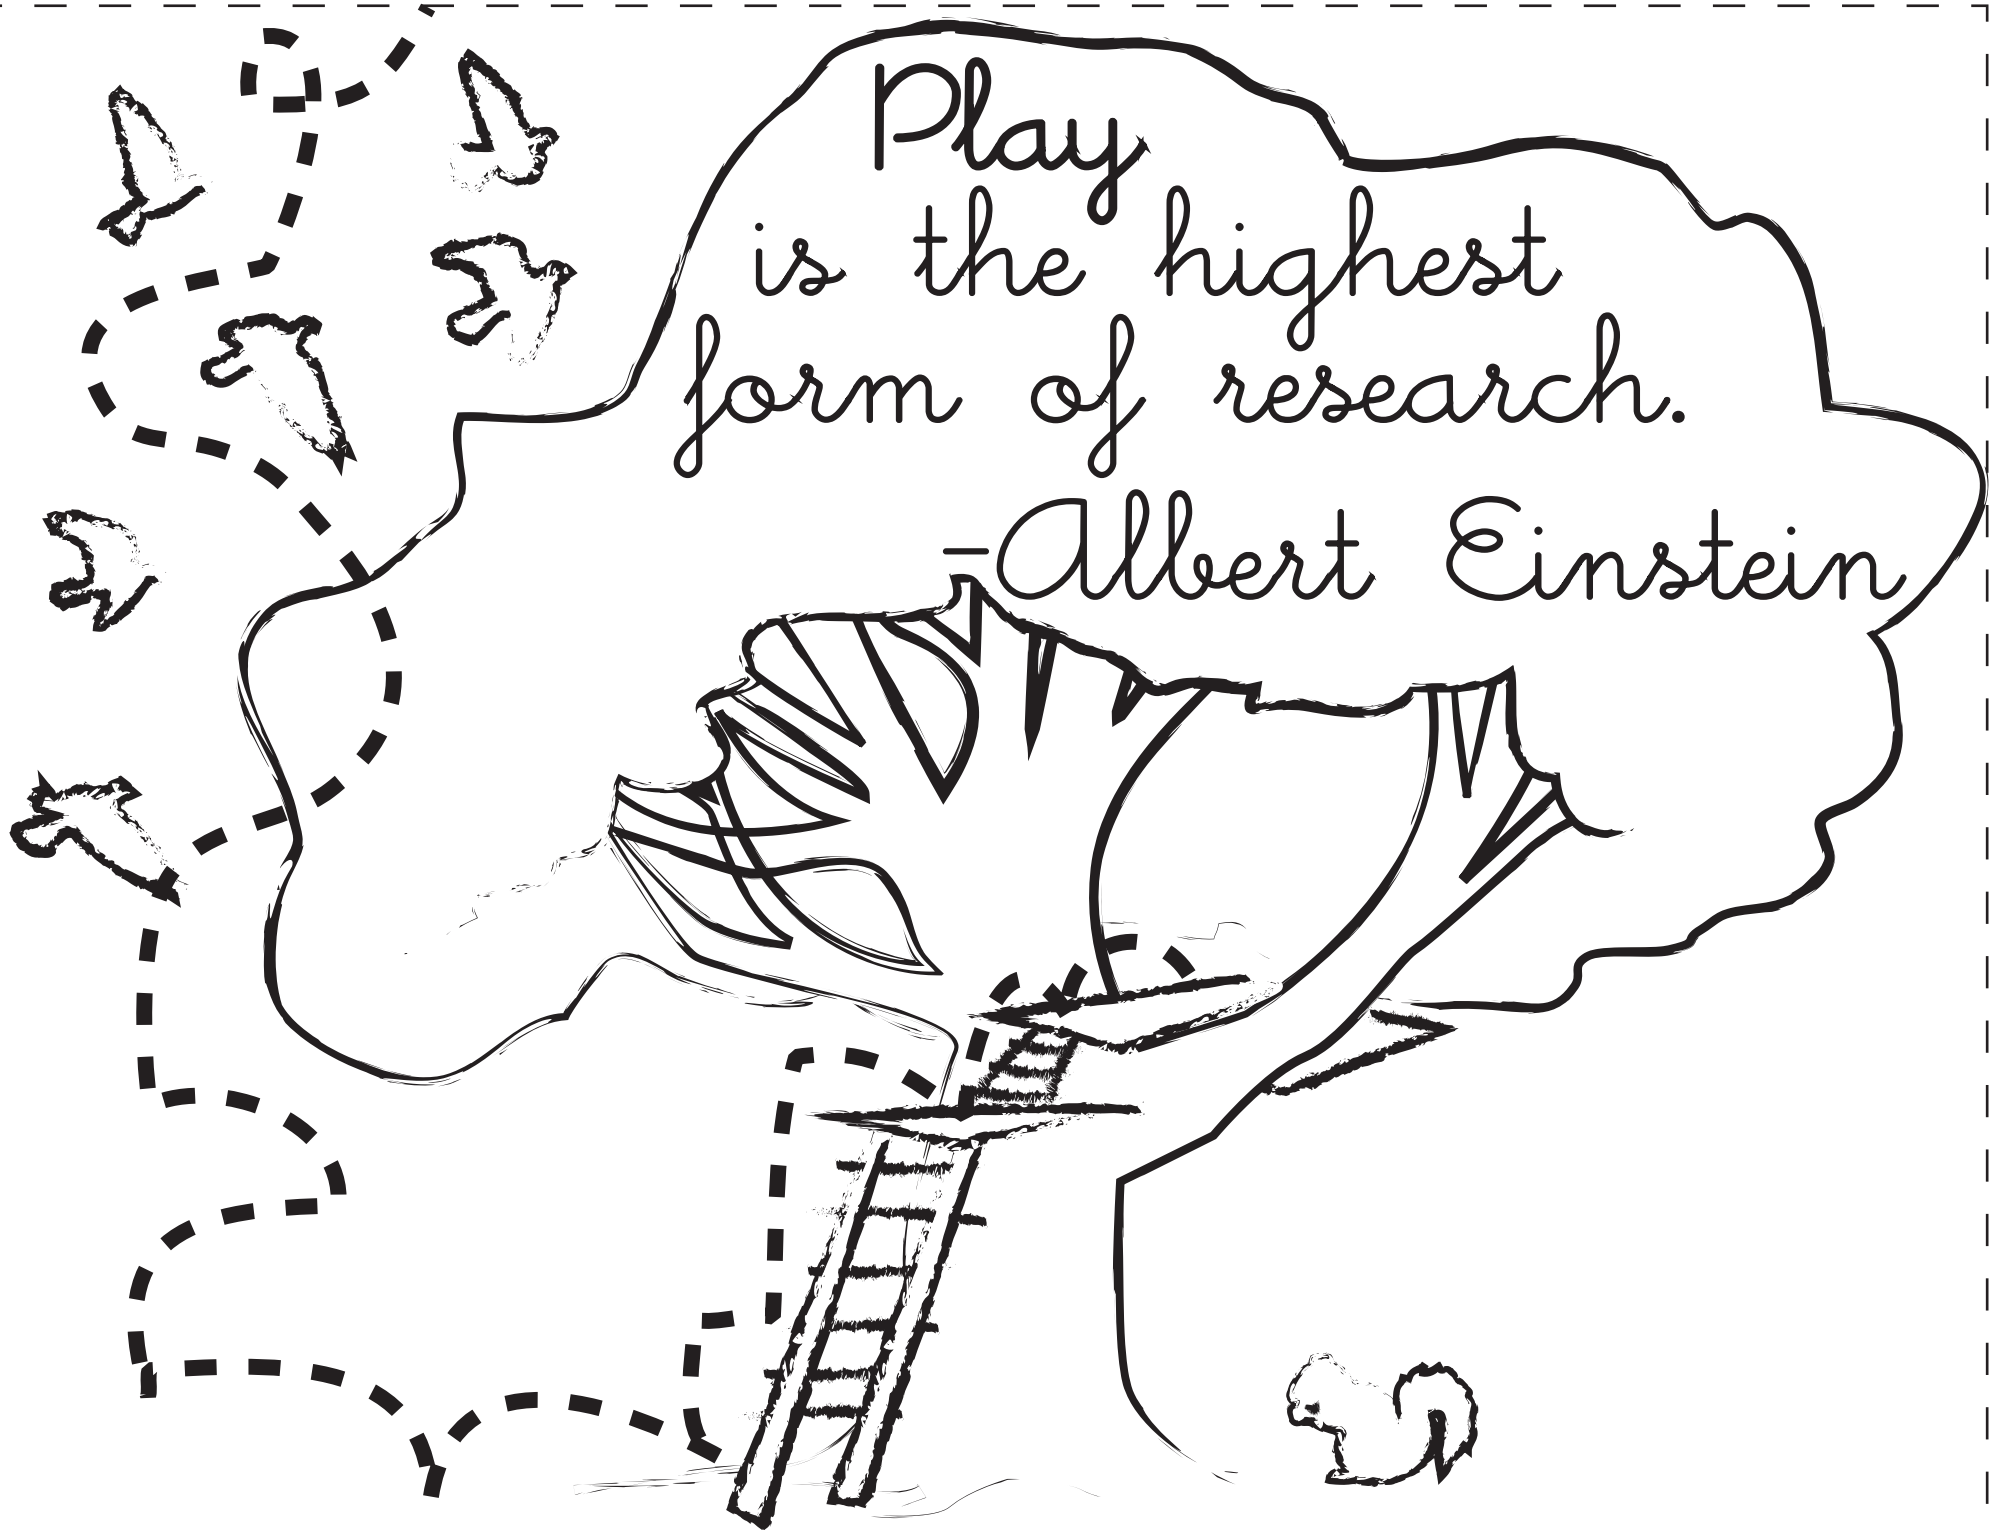 Play
is the highest
form of research.
-Albert Einstein